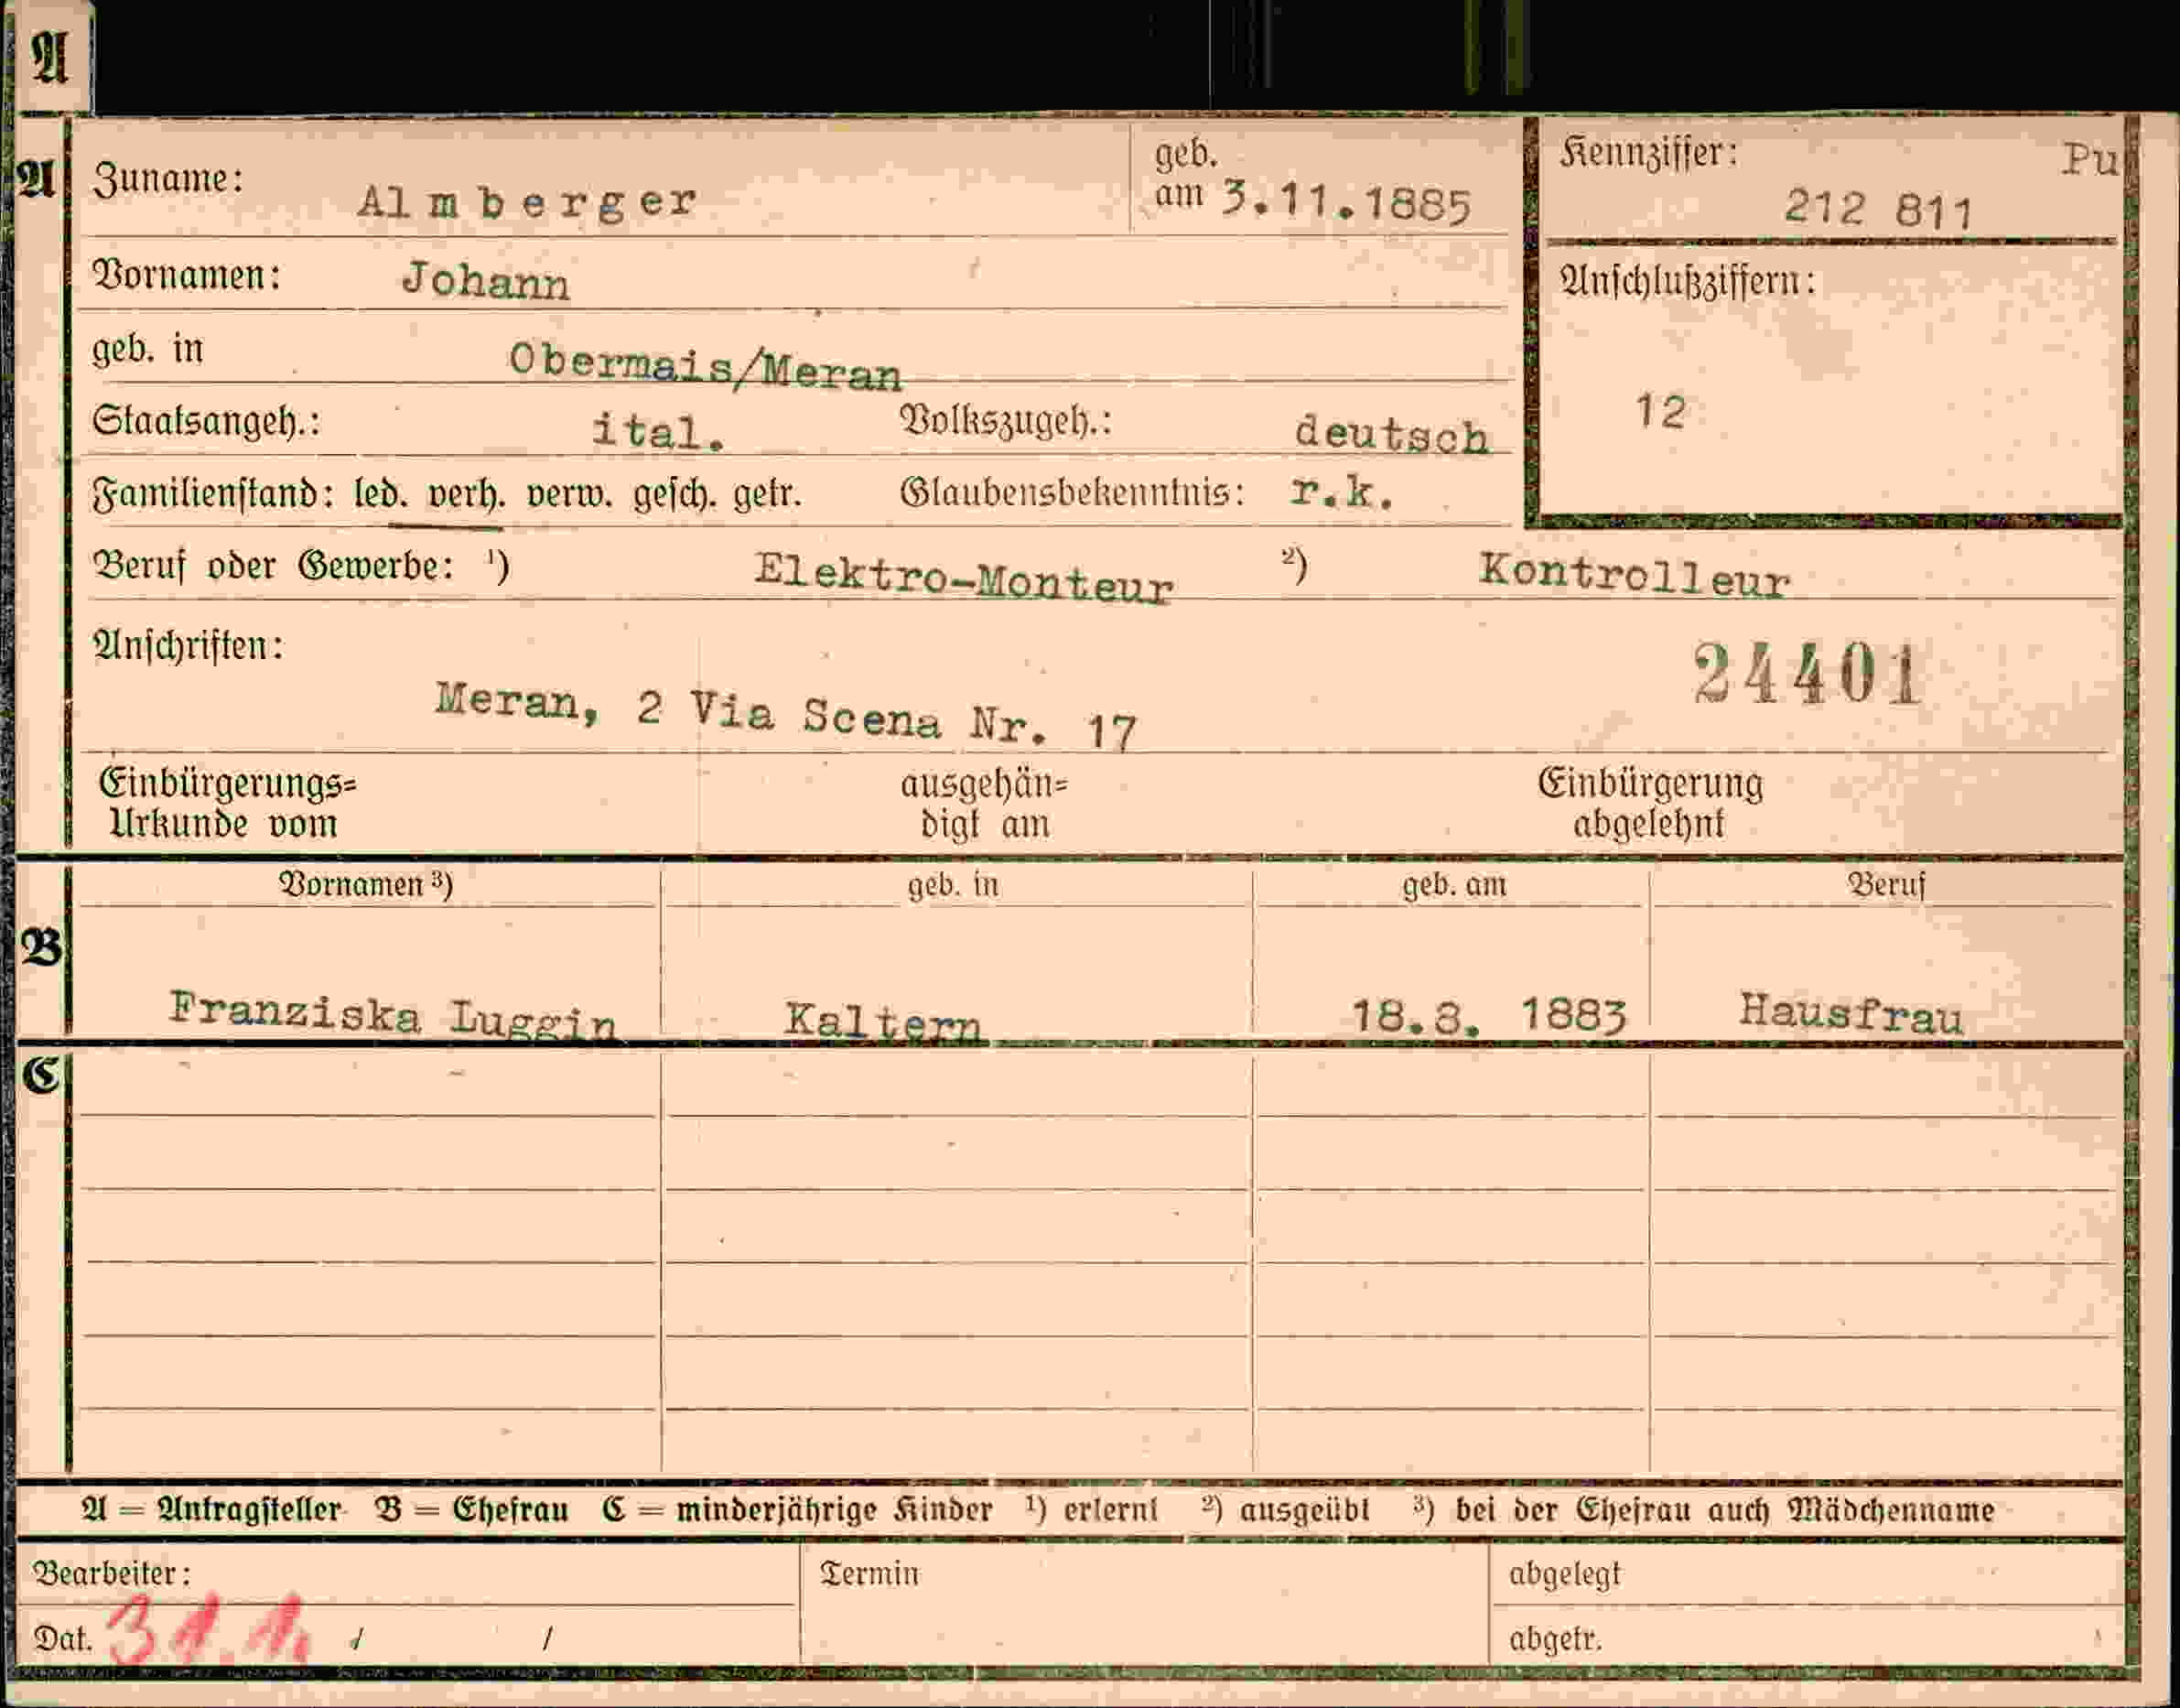 A
A
Zuname: Almberger geb. am 3.11.1885 Kennziffer: 212 811 Pu
Vornamen: Johann Anschlußziffern:
geb. in Obermais/Meran
Staatsangeh.: ital. Volkszugeh.: deutsch 12
Familienstand: led. verh. verw. gesch. getr. Glaubensbekenntnis: r.k.
Beruf oder Gewerbe: ¹) Elektro-Monteur ²) Kontrolleur
Anschriften: 24401
Meran, 2 Via Scena Nr. 17
Einbürgerungs= ausgehän= Einbürgerung
Urkunde vom digt am abgelehnt
Vornamen ³) geb. in geb. am Beruf
B
Franziska Luggin Kaltern 18.8. 1883 Hausfrau
C
A = Antragsteller B = Ehefrau C = minderjährige Kinder ¹) erlernt ²) ausgeübt ³) bei der Ehefrau auch Mädchenname
Bearbeiter: Termin abgelegt
Dat. 31.1. / / abgetr.